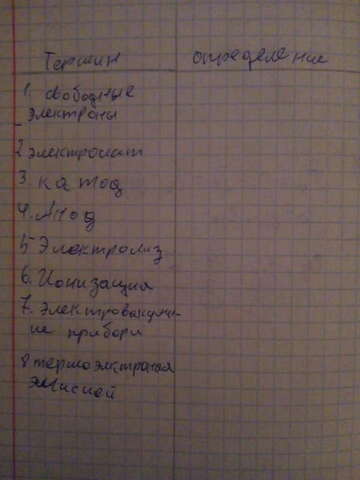 Термин определение
1. свободные
электроны
2 электролит
3. катод
4. Анод
5 Электролиз
6. Ионизация
7. электровакуум-
ие прибори
8 термоэлктроная
эмисией